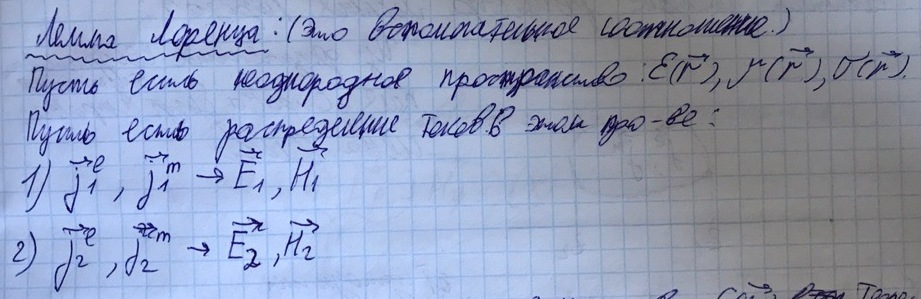 Лемма Лоренца: (Это вспомогательное соотношение.)
Пусть есть неоднородное пространство: ε(r⃗), μ(r⃗), σ(r⃗).
Пусть есть распределение токов в этом про-ве:
1) j⃗₁ᵉ, j⃗₁ᵐ → E⃗₁, H⃗₁
2) j⃗₂ᵉ, j⃗₂ᵐ → E⃗₂, H⃗₂